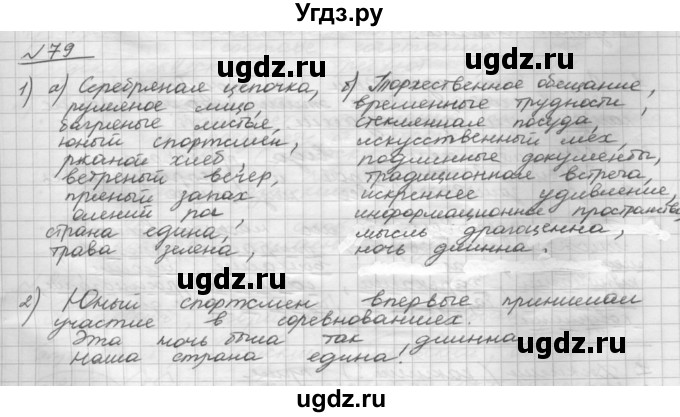 Угдз.ру
№79
1) а) Серебряная цепочка, б) Торжественное обещание,
румяное лицо, временные трудности,
багряные листья, стеклянная посуда,
юный спортсмен, искусственный мех,
ржаной хлеб, подлинные документы,
ветреный вечер, традиционная встреча,
пряный запах искреннее удивление,
олений рог, информационное пространство
страна едина, мысль драгоценна,
трава зелена, ночь длинна.
ugdz.ru ugdz.ru
ugdz.ru ugdz.ru
2) Юный спортсмен впервые принимал
участие в соревнованиях.
Эта ночь была так длинна.
Наша страна едина!
ugdz.ru ugdz.ru